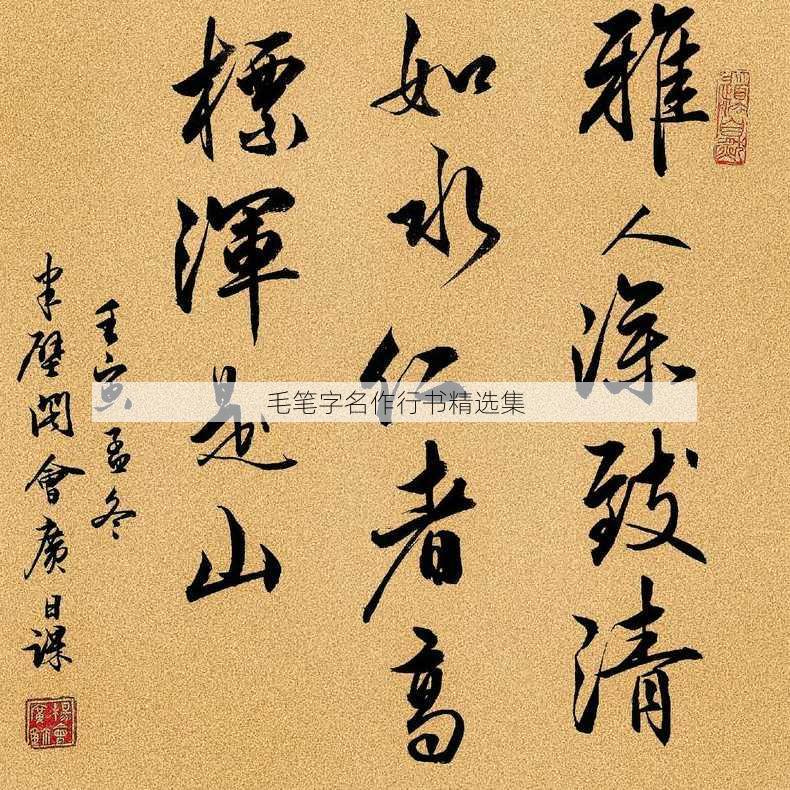 雅人深致清
如水仁者高
標渾是山
壬寅孟冬
半壁閣會廣日課
毛笔字名作行书精选集